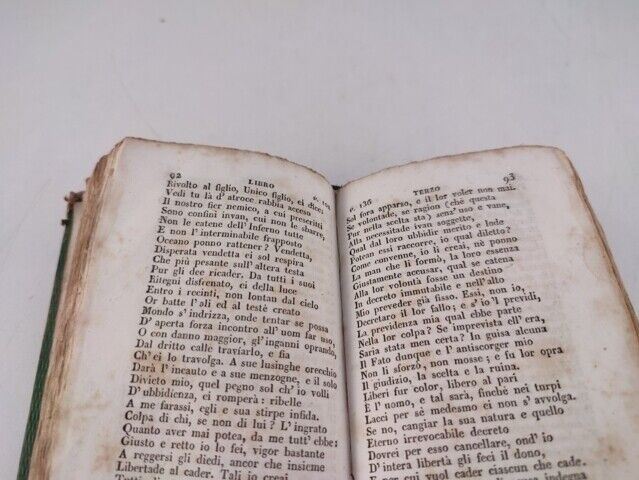 92 LIBRO
Rivolto al figlio, Unico figlio, ei dice:
Vedi tu là d' atroce rabbia acceso
Il nostro fier nemico, a cui prescritti
Sono confini invan, cui non le sbarre,
Non le catene dell' Inferno tutte
E non l' interminabile frapposto
Oceano ponno rattener? Vendetta,
Disperata vendetta ei sol respira
Che più pesante sull' altera testa
Pur gli dee ricader. Da tutti i suoi
Ritegni disfrenato, ei della luce
Entro i recinti, non lontan dal cielo
Or batte l' ali ed al testè creato
Mondo s' indrizza, onde tentar se possa
D' aperta forza incontro all' uom far uso,
O con danno maggior, gl' inganni oprando,
Dal dritto calle traviarlo, e fia
Ch' ei lo travolga. A sue lusinghe orecchio
Darà l' incauto e a sue menzogne, e il solo
Divieto mio, quel pegno sol ch' io volli
D' ubbidienza, ei romperà: ribelle
A me farassi, egli e sua stirpe infida.
Colpa di chi, se non di lui? L' ingrato
Quanto aver mai potea, da me tutt' ebbe:
Giusto e retto io lo fei, vigor bastante
A reggersi gli diedi, ancor che insieme
Libertade al cader. Tali io creai
v. 136 TERZO 93
Sol fora apparso, e il lor voler non mai.
Se volontade, se ragion (chè questa
Pur nella scelta sta) senz' uso e vane,
Alla necessitade ivan soggette,
Qual dal loro ubbidir merito e lode
Potean essi raccorre, io qual diletto?
Come convenne, io li creai, nè ponno
La man che li formò, la loro essenza
Giustamente accusar, qual se catena
Alla lor volontà fosse un destino
In decreto immutabile e nell' alto
Mio preveder già fisso. Essi, non io,
Decretaro il lor fallo; e s' io 'l previdi,
La previdenza mia qual ebbe parte
Nella lor colpa? Se imprevista ell' era,
Saria stata men certa? In guisa alcuna
Il Fato dunque e l' antiscorger mio
Non li sforzò, non mosse; e fu lor opra
Il giudizio, la scelta e la ruina.
Liberi fur color, libero al pari
E l' uomo, e tal sarà, finchè nei turpi
Lacci per sè medesmo ei non s' avvolga.
Se no, cangiar la sua natura e quello
Eterno irrevocabile decreto
Dovrei per esso cancellare, ond' io
D' intera libertà gli feci il dono,
E per cui vuol cader ciascun che cade.